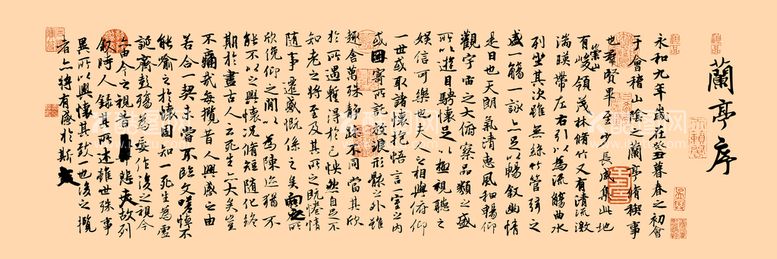 蘭亭序
永和九年歲在癸丑暮春之初會
于會稽山陰之蘭亭脩稧事
也群賢畢至少長咸集此地
有崇山峻領茂林脩竹又有清流激
湍暎帶左右引以為流觴曲水
列坐其次雖無絲竹管弦之
盛一觴一詠亦足以暢敘幽情
是日也天朗氣清惠風和暢仰
觀宇宙之大俯察品類之盛
所以遊目騁懷足以極視聽之
娛信可樂也夫人之相與俯仰
一世或取諸懷抱悟言一室之內
或因寄所託放浪形骸之外雖
趣舍萬殊靜躁不同當其欣
於所遇暫得於己怏然自足不
知老之將至及其所之既惓情
隨事遷感慨係之矣向之所
欣俛仰之間以為陳迹猶不
能不以之興懷況脩短隨化終
期於盡古人云死生亦大矣豈
不痛哉每攬昔人興感之由
若合一契未嘗不臨文嗟悼不
能喻之於懷固知一死生為虛
誕齊彭殤為妄作後之視今
亦由今之視昔悲夫故列
敘時人錄其所述雖世殊事
異所以興懷其致一也後之攬
者亦將有感於斯文